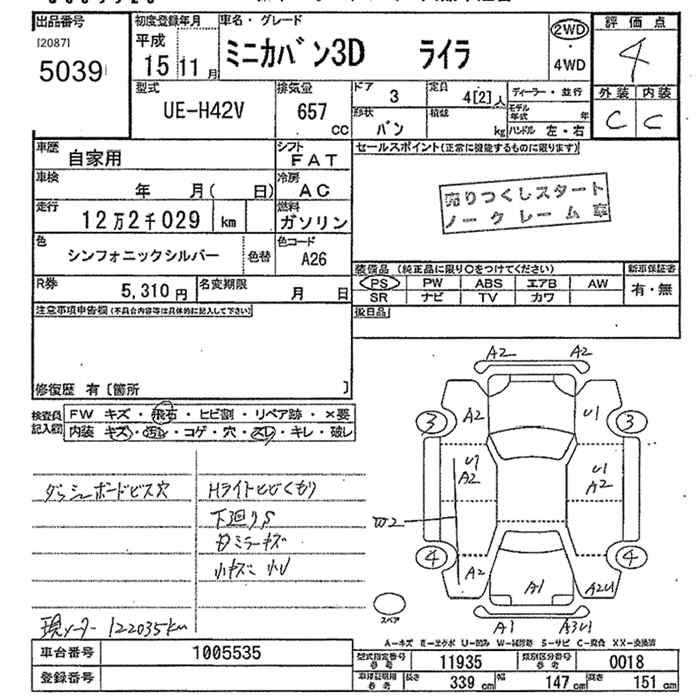 出品番号
[2087]
5039
初度登録年月
平成
15 11 月
車名・グレード
ミニカバン3D ライラ
2WD
・
4WD
評価点
4
外装 内装
C C
型式
UE-H42V
排気量
657
CC
ドア
3
定員
4[2]人
形状
バン
積載
kg
ディーラー・並行
モデル年式 年
ハンドル 左・右
車歴
自家用
シフト
FAT
車検
年 月( 日)
冷房
AC
走行
12万2千029 km
燃料
ガソリン
色
シンフォニックシルバー
色替
色コード
A26
R券
5,310 円
名変期限
月 日
セールスポイント(正常に機能するものに限ります)
売りつくしスタート
ノークレーム車
装備品 (純正品に限り○をつけてください)
PS PW ABS エアB AW
SR ナビ TV カワ
新車保証書
有・無
後日品
注意事項申告欄(不具合内容等は具体的に記入して下さい)
修復歴 有〔箇所 〕
検査員記入欄
FW キズ・飛石・ヒビ割・リペア跡・×要
内装 キズ・汚レ・コゲ・穴・スレ・キレ・破レ
ダッシュボードビス穴
Hライトヒビくもり
下廻りS
ミラーキズ
小キズ 小U
現メーター 122035km
A2 A2
3 A2 U1 3
U1 A2
U1 A2
W2
4 A2 A1 A2U1 4
A1 A3U1
スペア
A-キズ E-エクボ U-凹み W-補修跡 S-サビ C-腐食 XX-交換済
車台番号
1005535
登録番号
型式指定番号
参考
11935
類別区分番号
参考
0018
車検証期用
参考
長さ
339 cm
幅
147 cm
高さ
151 cm